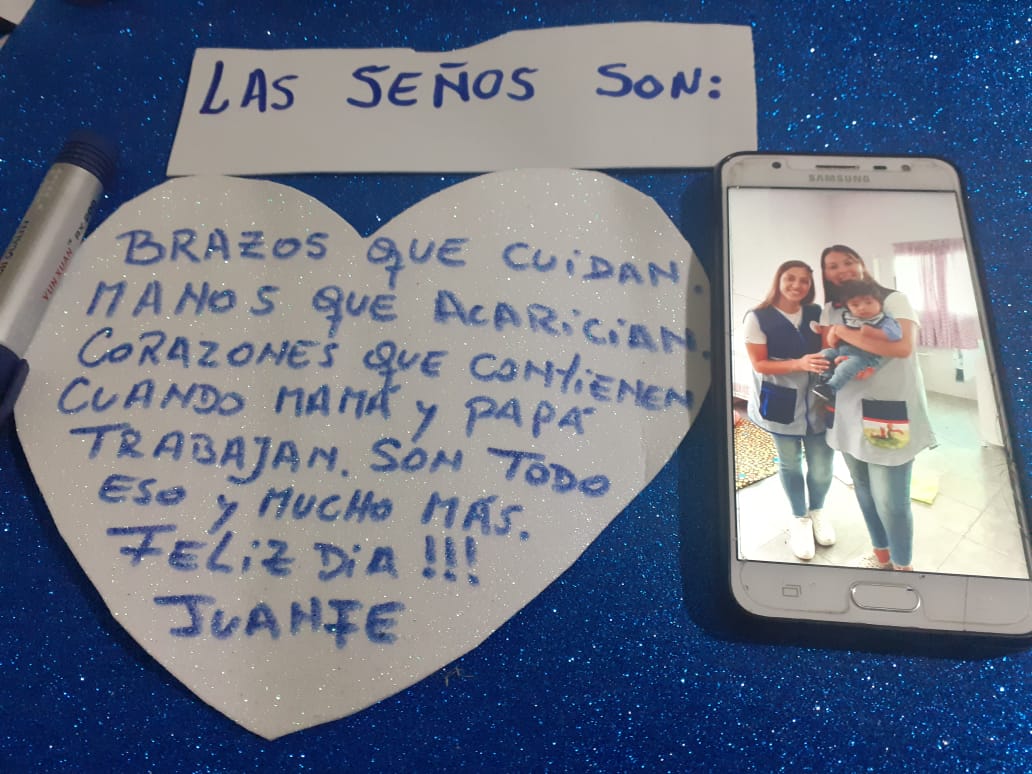 LAS SEÑOS SON:
BRAZOS QUE CUIDAN.
MANOS QUE ACARICIAN.
CORAZONES QUE CONTIENEN
CUANDO MAMÁ Y PAPÁ
TRABAJAN. SON TODO
ESO Y MUCHO MÁS.
FELIZ DIA !!!
JUANFE
SAMSUNG
YUNXUAN